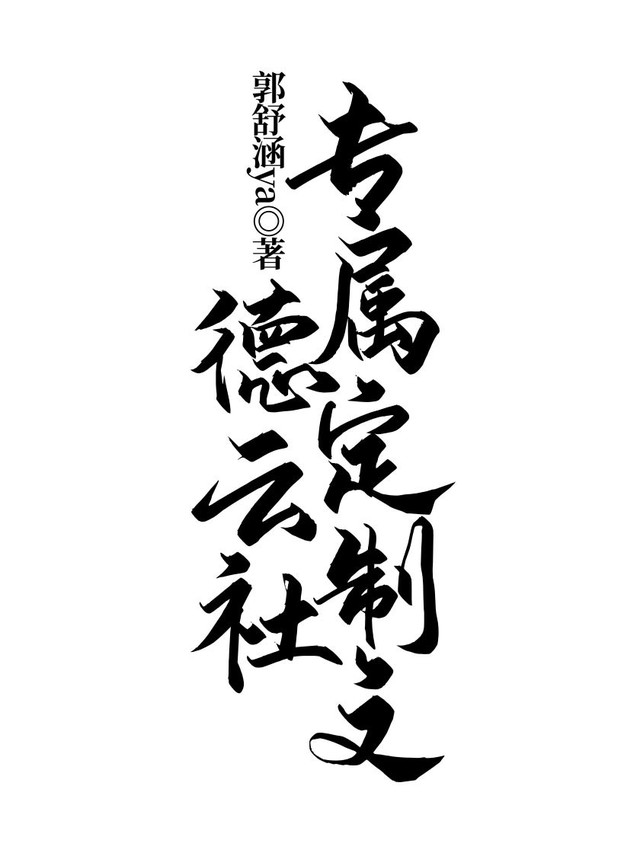 专属定制文
德云社
郭舒涵ya◎著